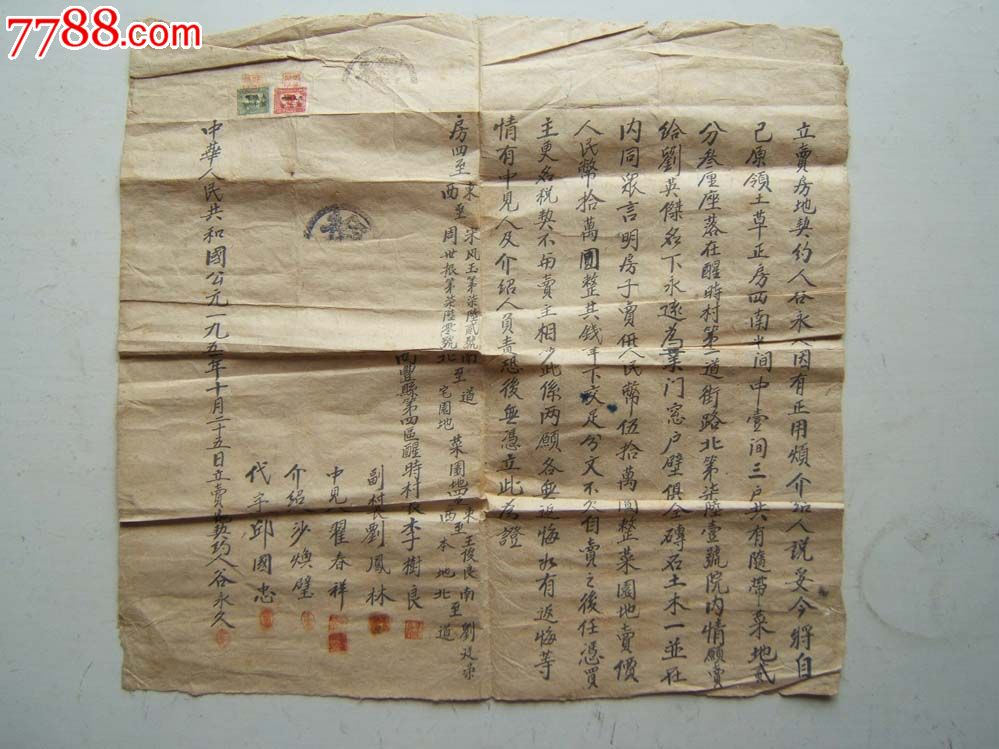 7788.com
立賣房地契約人谷永久因有正用煩介紹人説妥今將自
己原領土草正房西南半間中壹間三户共有隨帶菜地貳
分叁厘座落在醒時村第一道街路北第柒陸壹號院内情願賣
給劉英傑名下永遠為業门窓户壁俱全磚石土木一並在
内同衆言明房子賣価人民幣伍拾萬圓整菜園地賣價
人民幣拾萬圓整其錢筆下交足分文不欠自賣之後任憑買
主更名税契不與賣主相干此係两願各無返悔如有返悔等
情有中見人及介紹人負責恐後無憑立此為證
房四至 東至宋凤玉第柒陸貳號 南至道 菜園地 東至王俊良 南至劉廷荣
西至周世振第柒陸零號 北至宅園地 西至本地 北至道
豐縣第四區醒時村長李樹良
副村長劉鳳林
中見人翟春祥
介紹人沙煥璧
代字邱國忠
中華人民共和國公元一九五一年十月二十五日立賣契約人谷永久